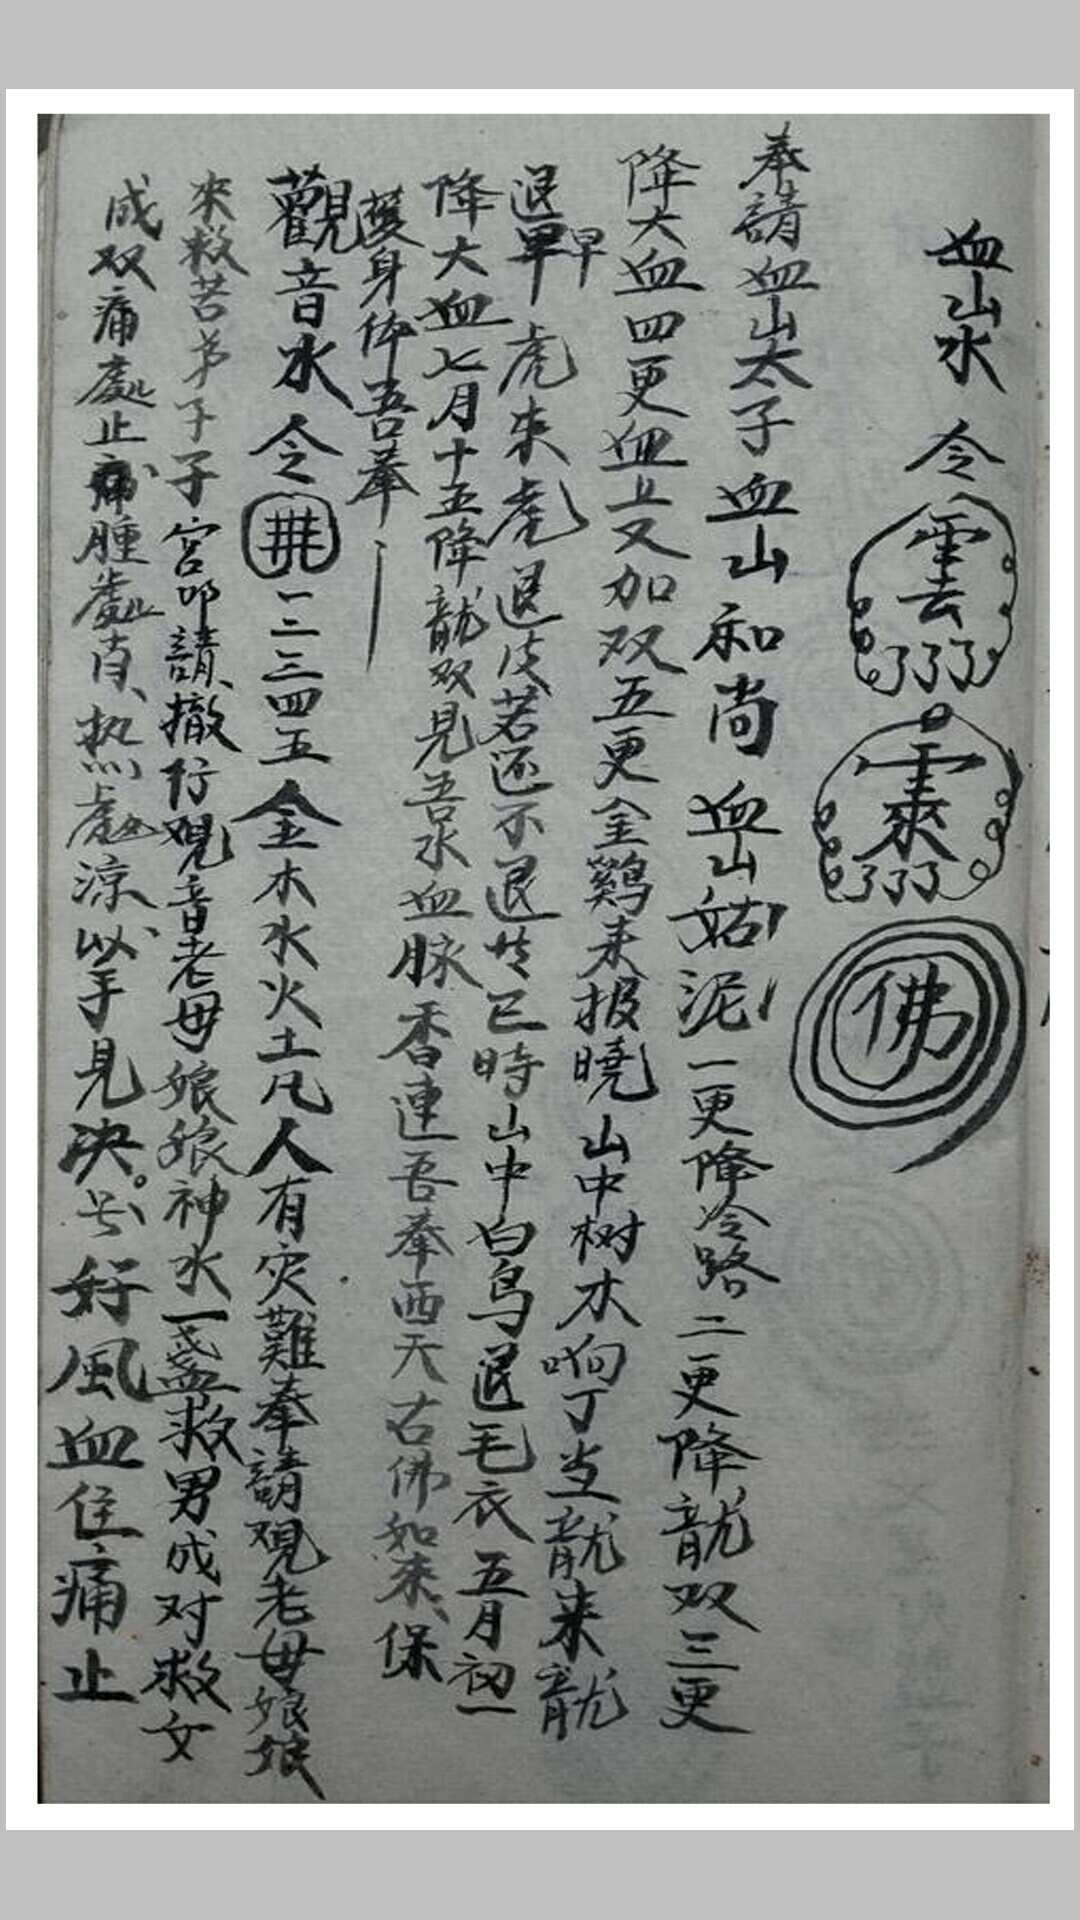 血山水 令 雲 了了了 靈 了了了 佛
奉請血山太子血山和尚血山姑泥一更降冷路二更降龍双三更
降大血四更血上又加双五更金鷄来报曉山中树木响丁当龍来龍
退早 早 虎来虎退皮若还不退 巳時山中白鸟退毛衣五月初一
降大血七月十五降龍双見吾水血脉香連吾奉西天古佛如来保
護身体吾奉
觀音水 令 井 一二三四五金木水火土凡人有灾難奉請观老母娘娘
来救苦弟子子宫叩請撤行观音老母娘娘神水一盏救男成对救女
成双痛處止痛腫處肖热處凉以手見决 好風血住痛止